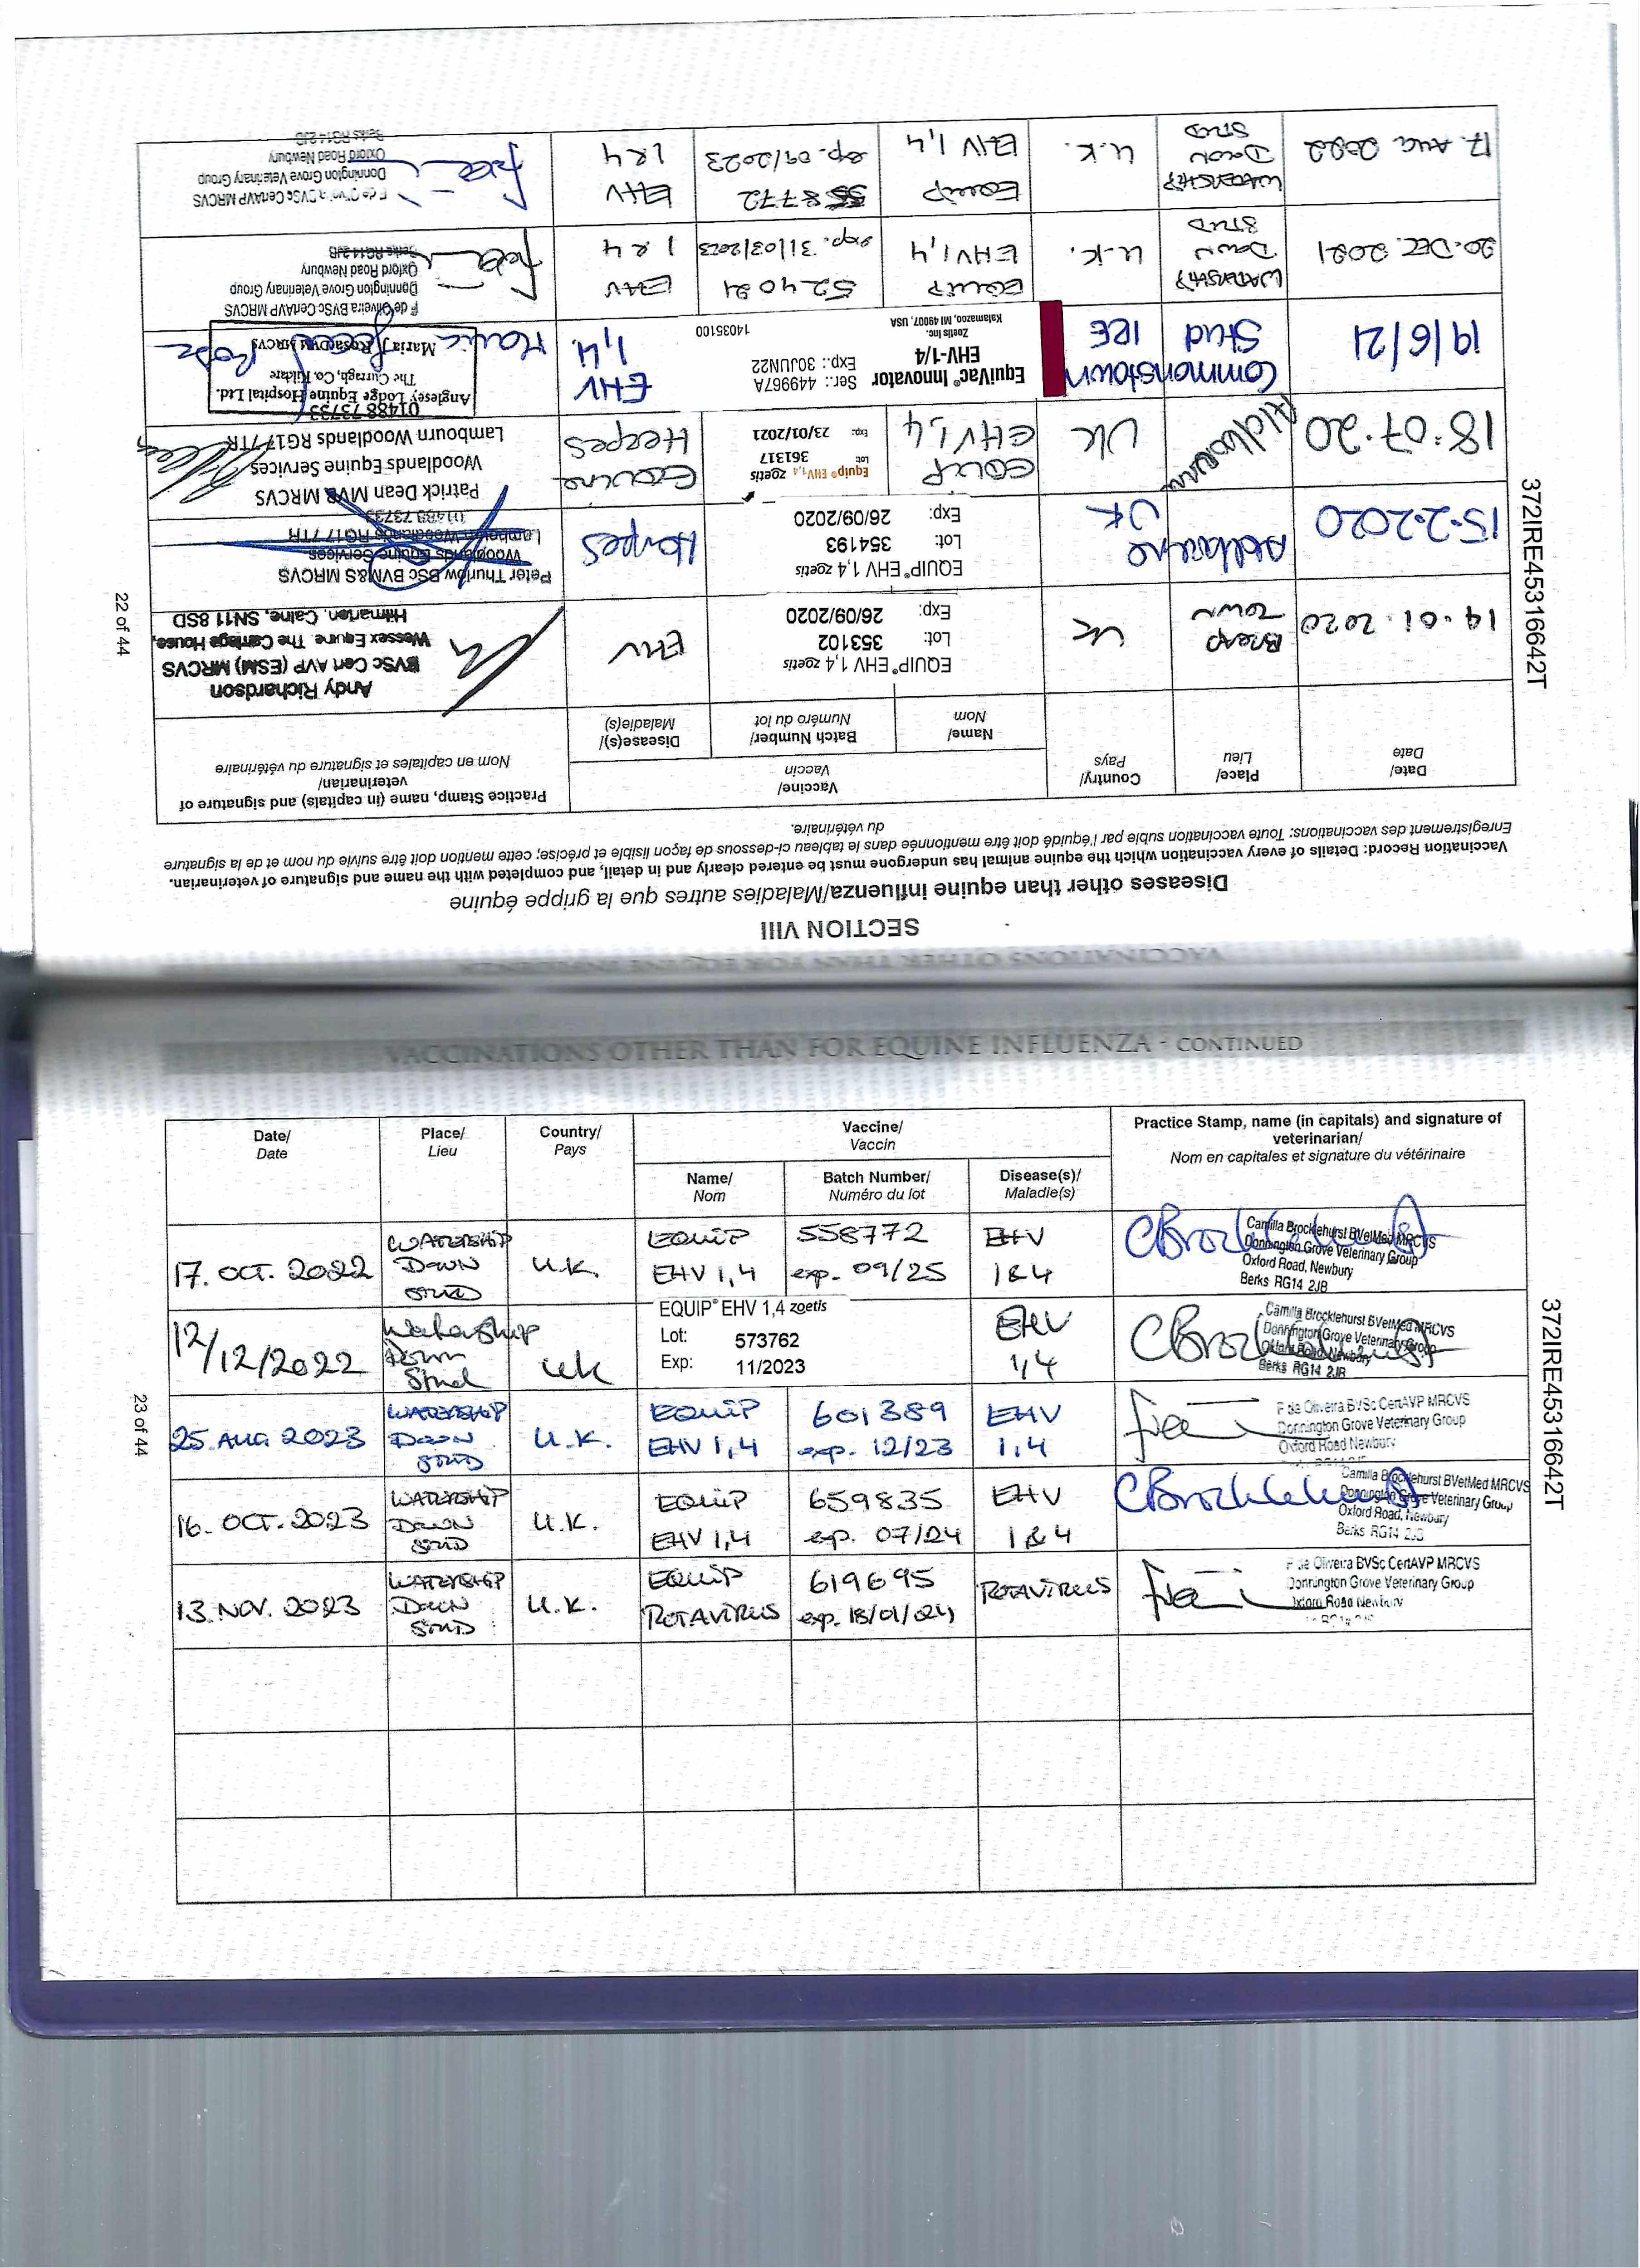 SECTION VIII
Diseases other than equine influenza/Maladies autres que la grippe équine
Vaccination Record: Details of every vaccination which the equine animal has undergone must be entered clearly and in detail, and completed with the name and signature of veterinarian.
Enregistrement des vaccinations: Toute vaccination subie par l'équidé doit être mentionnée dans le tableau ci-dessous de façon lisible et précise; cette mention doit être suivie du nom et de la signature
du vétérinaire.
Date/
Date
Place/
Lieu
Country/
Pays
Vaccine/
Vaccin
Name/
Nom
Batch Number/
Numéro du lot
Disease(s)/
Maladie(s)
Practice Stamp, name (in capitals) and signature of
veterinarian/
Nom en capitales et signature du vétérinaire
14.01.2020
TOWN
UK
EQUIP® EHV 1,4 zoetis
Lot: 353102
Exp: 26/09/2020
EHV
Andy Richardson
BVSc Cert AVP (ESM) MRCVS
Wessex Equine The Carriage House,
Hilmarton, Calne, SN11 8SD
15.2.2020
UK
EQUIP® EHV 1,4 zoetis
Lot: 354193
Exp: 26/09/2020
Herpes
Peter Thurlow BSc BVM&S MRCVS
Woodlands Equine Services
Lambourn Woodlands RG17 7TR
01488 73733
18.07.20
Aldbourne
UK
EQUIP
EHV 1,4
Equip® EHV 1,4 zoetis
Lot: 361317
Exp: 23/01/2021
Equine
Herpes
Patrick Dean MVB MRCVS
Woodlands Equine Services
Lambourn Woodlands RG17 7TR
01488 73733
19/6/21
Commonstown
Stud
IRE
EquiVac® Innovator
EHV-1/4
Zoetis Inc.
Kalamazoo, MI 49007, USA
Ser.: 449967A
Exp.: 30JUN22
14035100
EHV
1,4.
Anglesey Lodge Equine Hospital Ltd.
The Curragh, Co. Kildare
Maria J Rosado MRCVS
20. DEC. 2021
WATERSHIP
DOWN
STUD
U.K.
EQUIP
EHV 1,4
524094
exp. 31/03/2023
EHV
1 & 4
F de Oliveira BVSc CertAVP MRCVS
Donnington Grove Veterinary Group
Oxford Road Newbury
Berks RG14 2JB
17. AUG 2022
WATERSHIP
DOWN
STUD
U.K.
EQUIP
EHV 1,4
558772
exp. 09/2023
EHV
1 & 4
F de Oliveira BVSc CertAVP MRCVS
Donnington Grove Veterinary Group
Oxford Road Newbury
Berks RG14 2JB
372IRE45316642T
22 of 44
VACCINATIONS OTHER THAN FOR EQUINE INFLUENZA
VACCINATIONS OTHER THAN FOR EQUINE INFLUENZA - CONTINUED
Date/
Date
Place/
Lieu
Country/
Pays
Vaccine/
Vaccin
Name/
Nom
Batch Number/
Numéro du lot
Disease(s)/
Maladie(s)
Practice Stamp, name (in capitals) and signature of
veterinarian/
Nom en capitales et signature du vétérinaire
17. OCT. 2022
WATERSHIP
DOWN
STUD
U.K.
EQUIP
EHV 1,4
558772
exp. 09/25
EHV
1&4
CBrocklehurst
Camilla Brocklehurst BVetMed MRCVS
Donnington Grove Veterinary Group
Oxford Road, Newbury
Berks RG14 2JB
12/12/2022
Watership
Down
Stud
UK
EQUIP® EHV 1,4 zoetis
Lot: 573762
Exp: 11/2023
EHV
1,4
CBrocklehurst
Camilla Brocklehurst BVetMed MRCVS
Donnington Grove Veterinary Group
Oxford Road, Newbury
Berks RG14 2JB
25. AUG 2023
WATERSHIP
DOWN
STUD
U.K.
EQUIP
EHV 1,4
601389
exp. 12/23
EHV
1,4
F de Oliveira BVSc CertAVP MRCVS
Donnington Grove Veterinary Group
Oxford Road Newbury
16. OCT. 2023
WATERSHIP
DOWN
STUD
U.K.
EQUIP
EHV 1,4
659835
exp. 07/24
EHV
1 & 4
CBrocklehurst
Camilla Brocklehurst BVetMed MRCVS
Donnington Grove Veterinary Group
Oxford Road, Newbury
Berks RG14 2JB
13. NOV. 2023
WATERSHIP
DOWN
STUD
U.K.
EQUIP
ROTAVIRUS
619695
exp. 18/01/24
ROTAVIRUS
F de Oliveira BVSc CertAVP MRCVS
Donnington Grove Veterinary Group
Oxford Road Newbury
372IRE45316642T
23 of 44